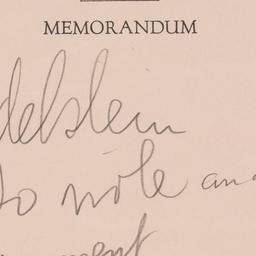 MEMORANDUM
delstein
to note and